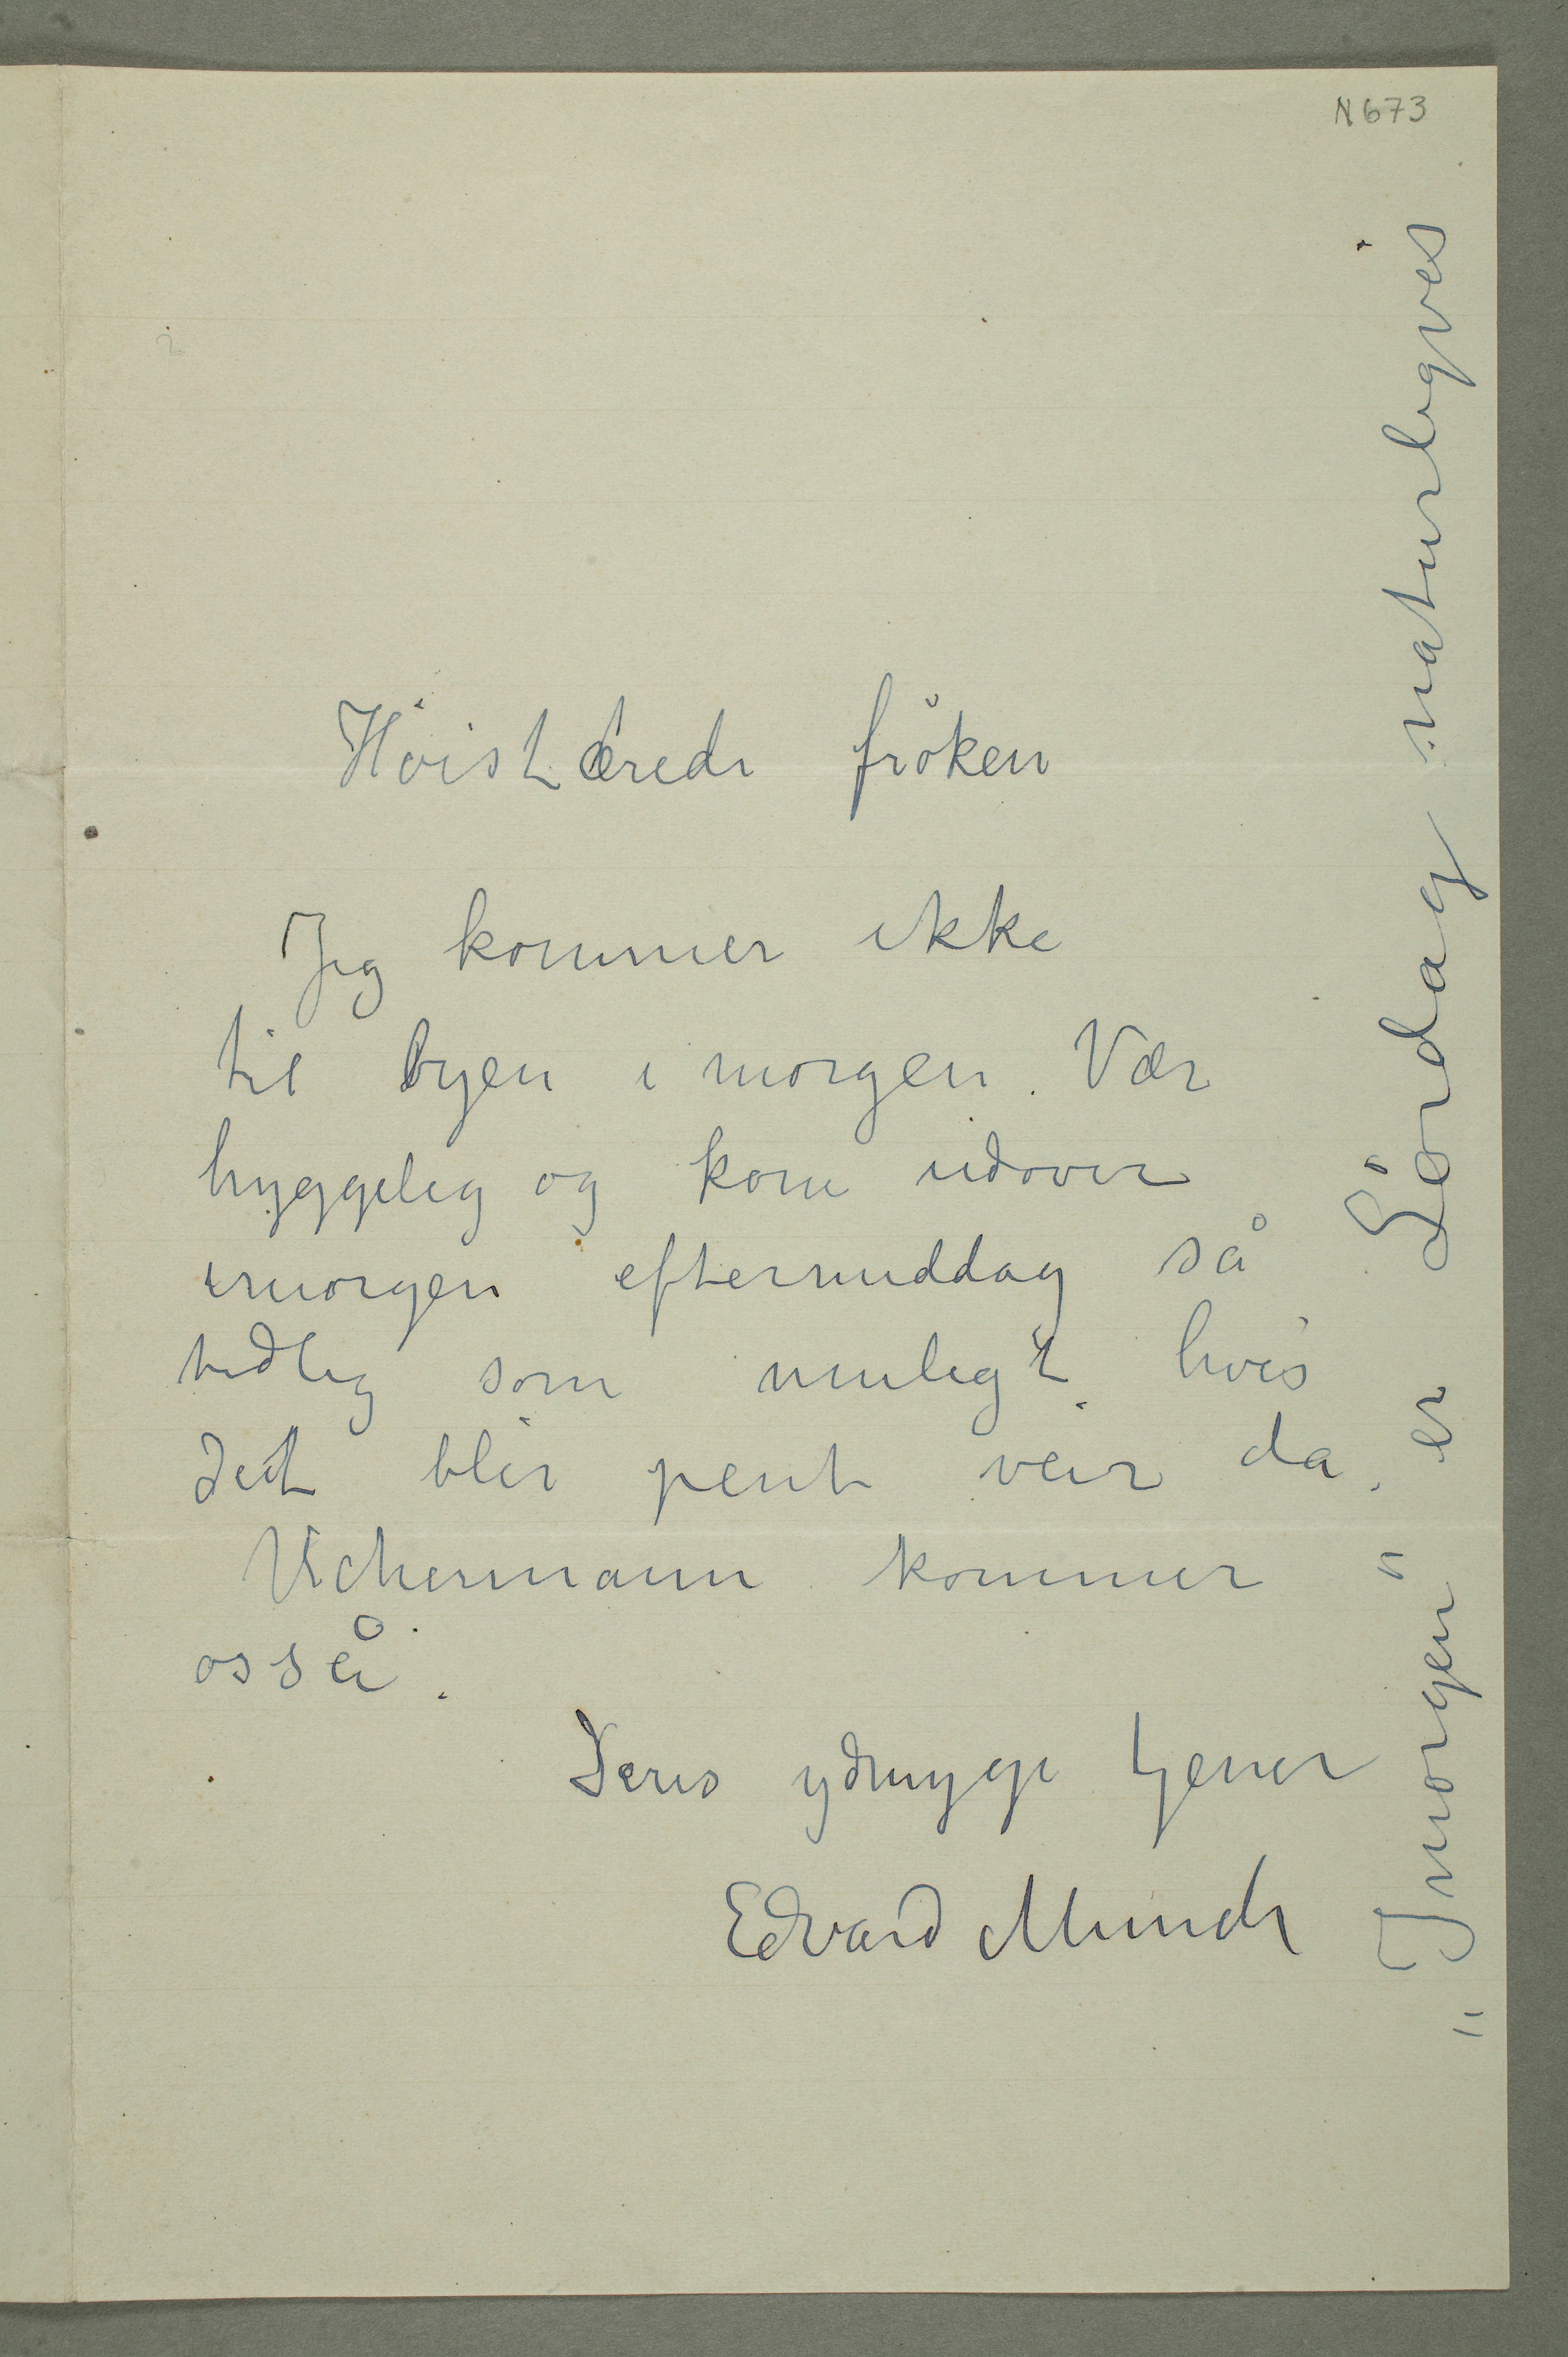 N 673
Höist ærede fröken
Jeg kommer ikke
til byen i morgen. Vær
hyggelig og kom udover
imorgen eftermiddag så
tidlig som muligt hvis
det blir pent veir da.
Uchermann kommer
osså.
Deres ydmyge tjener
Edvard Munch
„Imorgen" er Lördag naturligvis